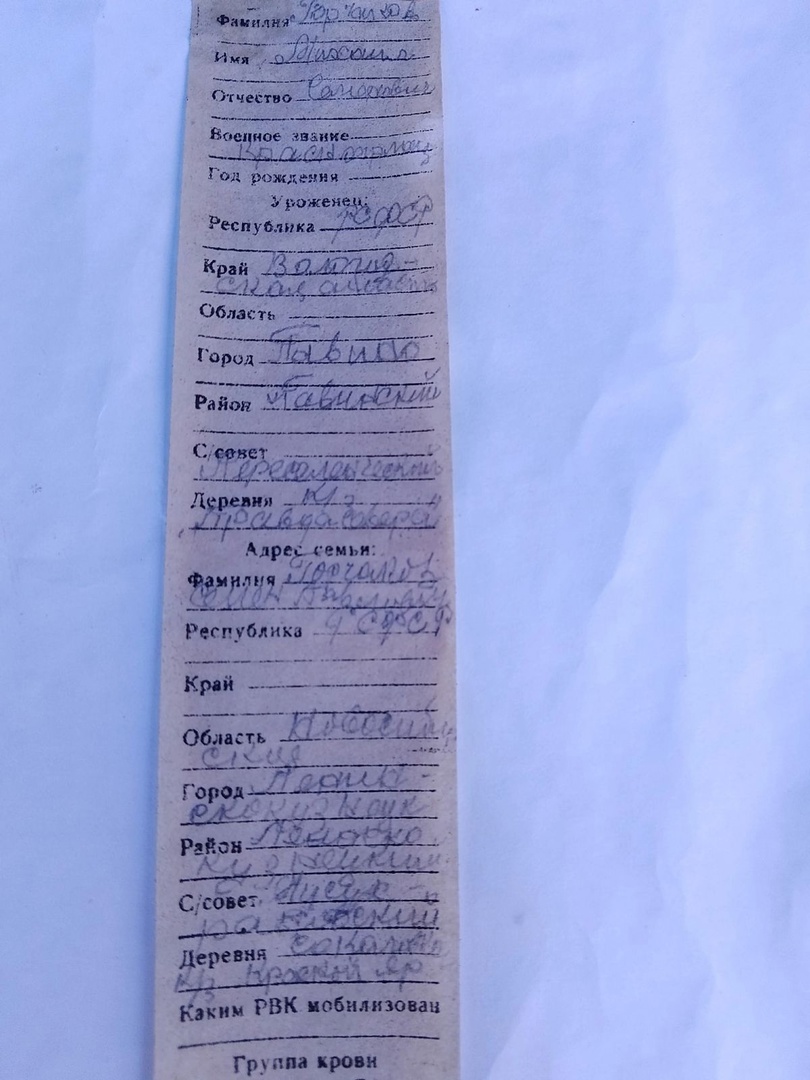 Фамилия Горчаков
Имя Михаил
Отчество Семенович
Военное звание
Красноармеец
Год рождения
Уроженец:
Республика РСФСР
Край Вологод-
ская область
Область
Город Павино
Район Павинский
С/совет
Деревня К/з
Правда Северa
Адрес семьи:
Фамилия Горчаков
Семен Павлович
Республика РСФСР
Край
Область Новосибир
ская
Город
Район Ленинско
Кузнецкий
С/совет
Деревня
К/з Красный Яр
Каким РВК мобилизован
Группа крови